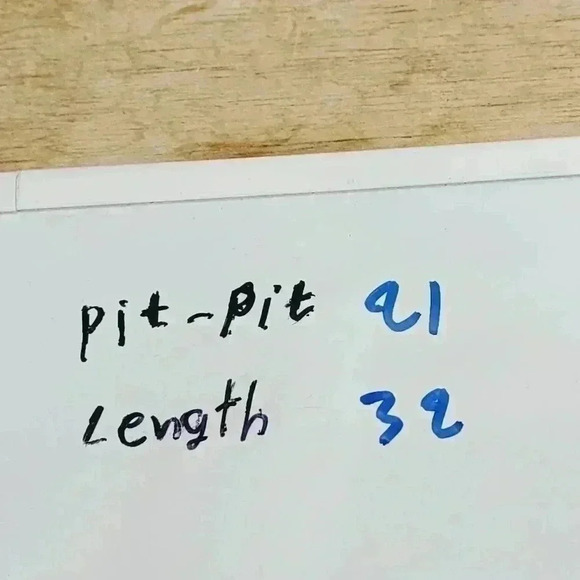 pit-pit 21
Length 32